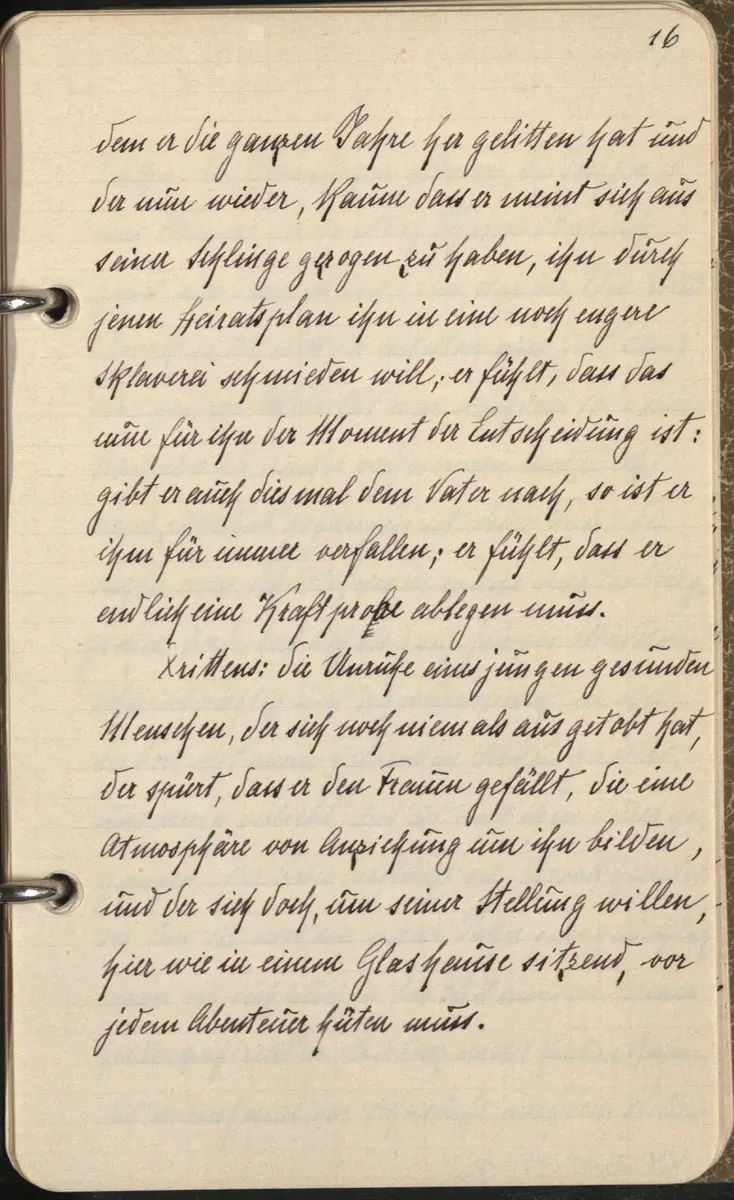 16
dem er die ganzen Jahre her gelitten hat und
der nun wieder, kaum dass er meint sich aus
seiner Schlinge gezogen zu haben, ihn durch
jenen Heiratsplan ihn in eine noch engere
Sklaverei schmieden will; er fühlt, dass das
nun für ihn der Moment der Entscheidung ist:
gibt er auch diesmal dem Vater nach, so ist er
ihm für immer verfallen; er fühlt, dass er
endlich eine Kraftprobe ablegen muss.
Drittens: die Unruhe eines jungen gesunden
Menschen, der sich noch niemals ausgetobt hat,
der spürt, dass er den Frauen gefällt, die eine
Atmosphäre von Anziehung um ihn bilden,
und der sich doch, um seiner Stellung willen,
hier wie in einem Glashause sitzend, vor
jedem Abenteuer hüten muss.